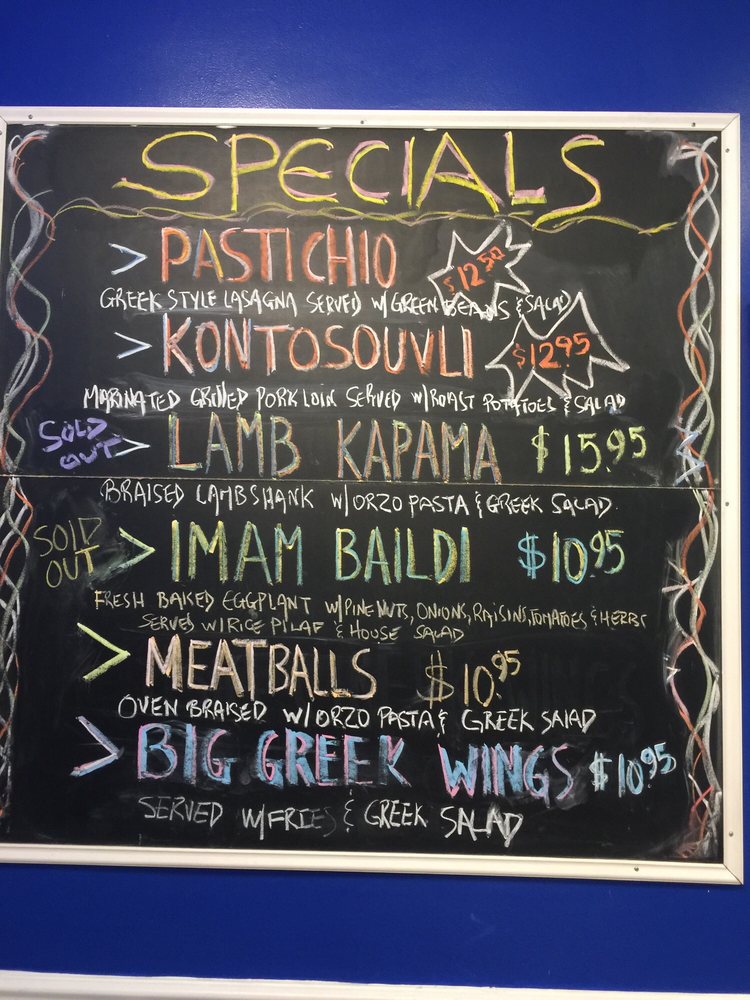 SPECIALS
> PASTICHIO $12.50
GREEK STYLE LASAGNA SERVED W/GREEN BEANS & SALAD
> KONTOSOUVLI $12.95
MARINATED GRILLED PORK LOIN SERVED W/ROAST POTATOES & SALAD
SOLD OUT > LAMB KAPAMA $15.95
BRAISED LAMBSHANK W/ORZO PASTA & GREEK SALAD
SOLD OUT > IMAM BAILDI $10.95
FRESH BAKED EGGPLANT W/PINE NUTS, ONIONS, RAISINS, TOMATOES & HERBS
SERVES W/RICE PILAF & HOUSE SALAD
> MEATBALLS $10.95
OVEN BRAISED W/ORZO PASTA & GREEK SALAD
> BIG GREEK WINGS $10.95
SERVED W/FRIES & GREEK SALAD